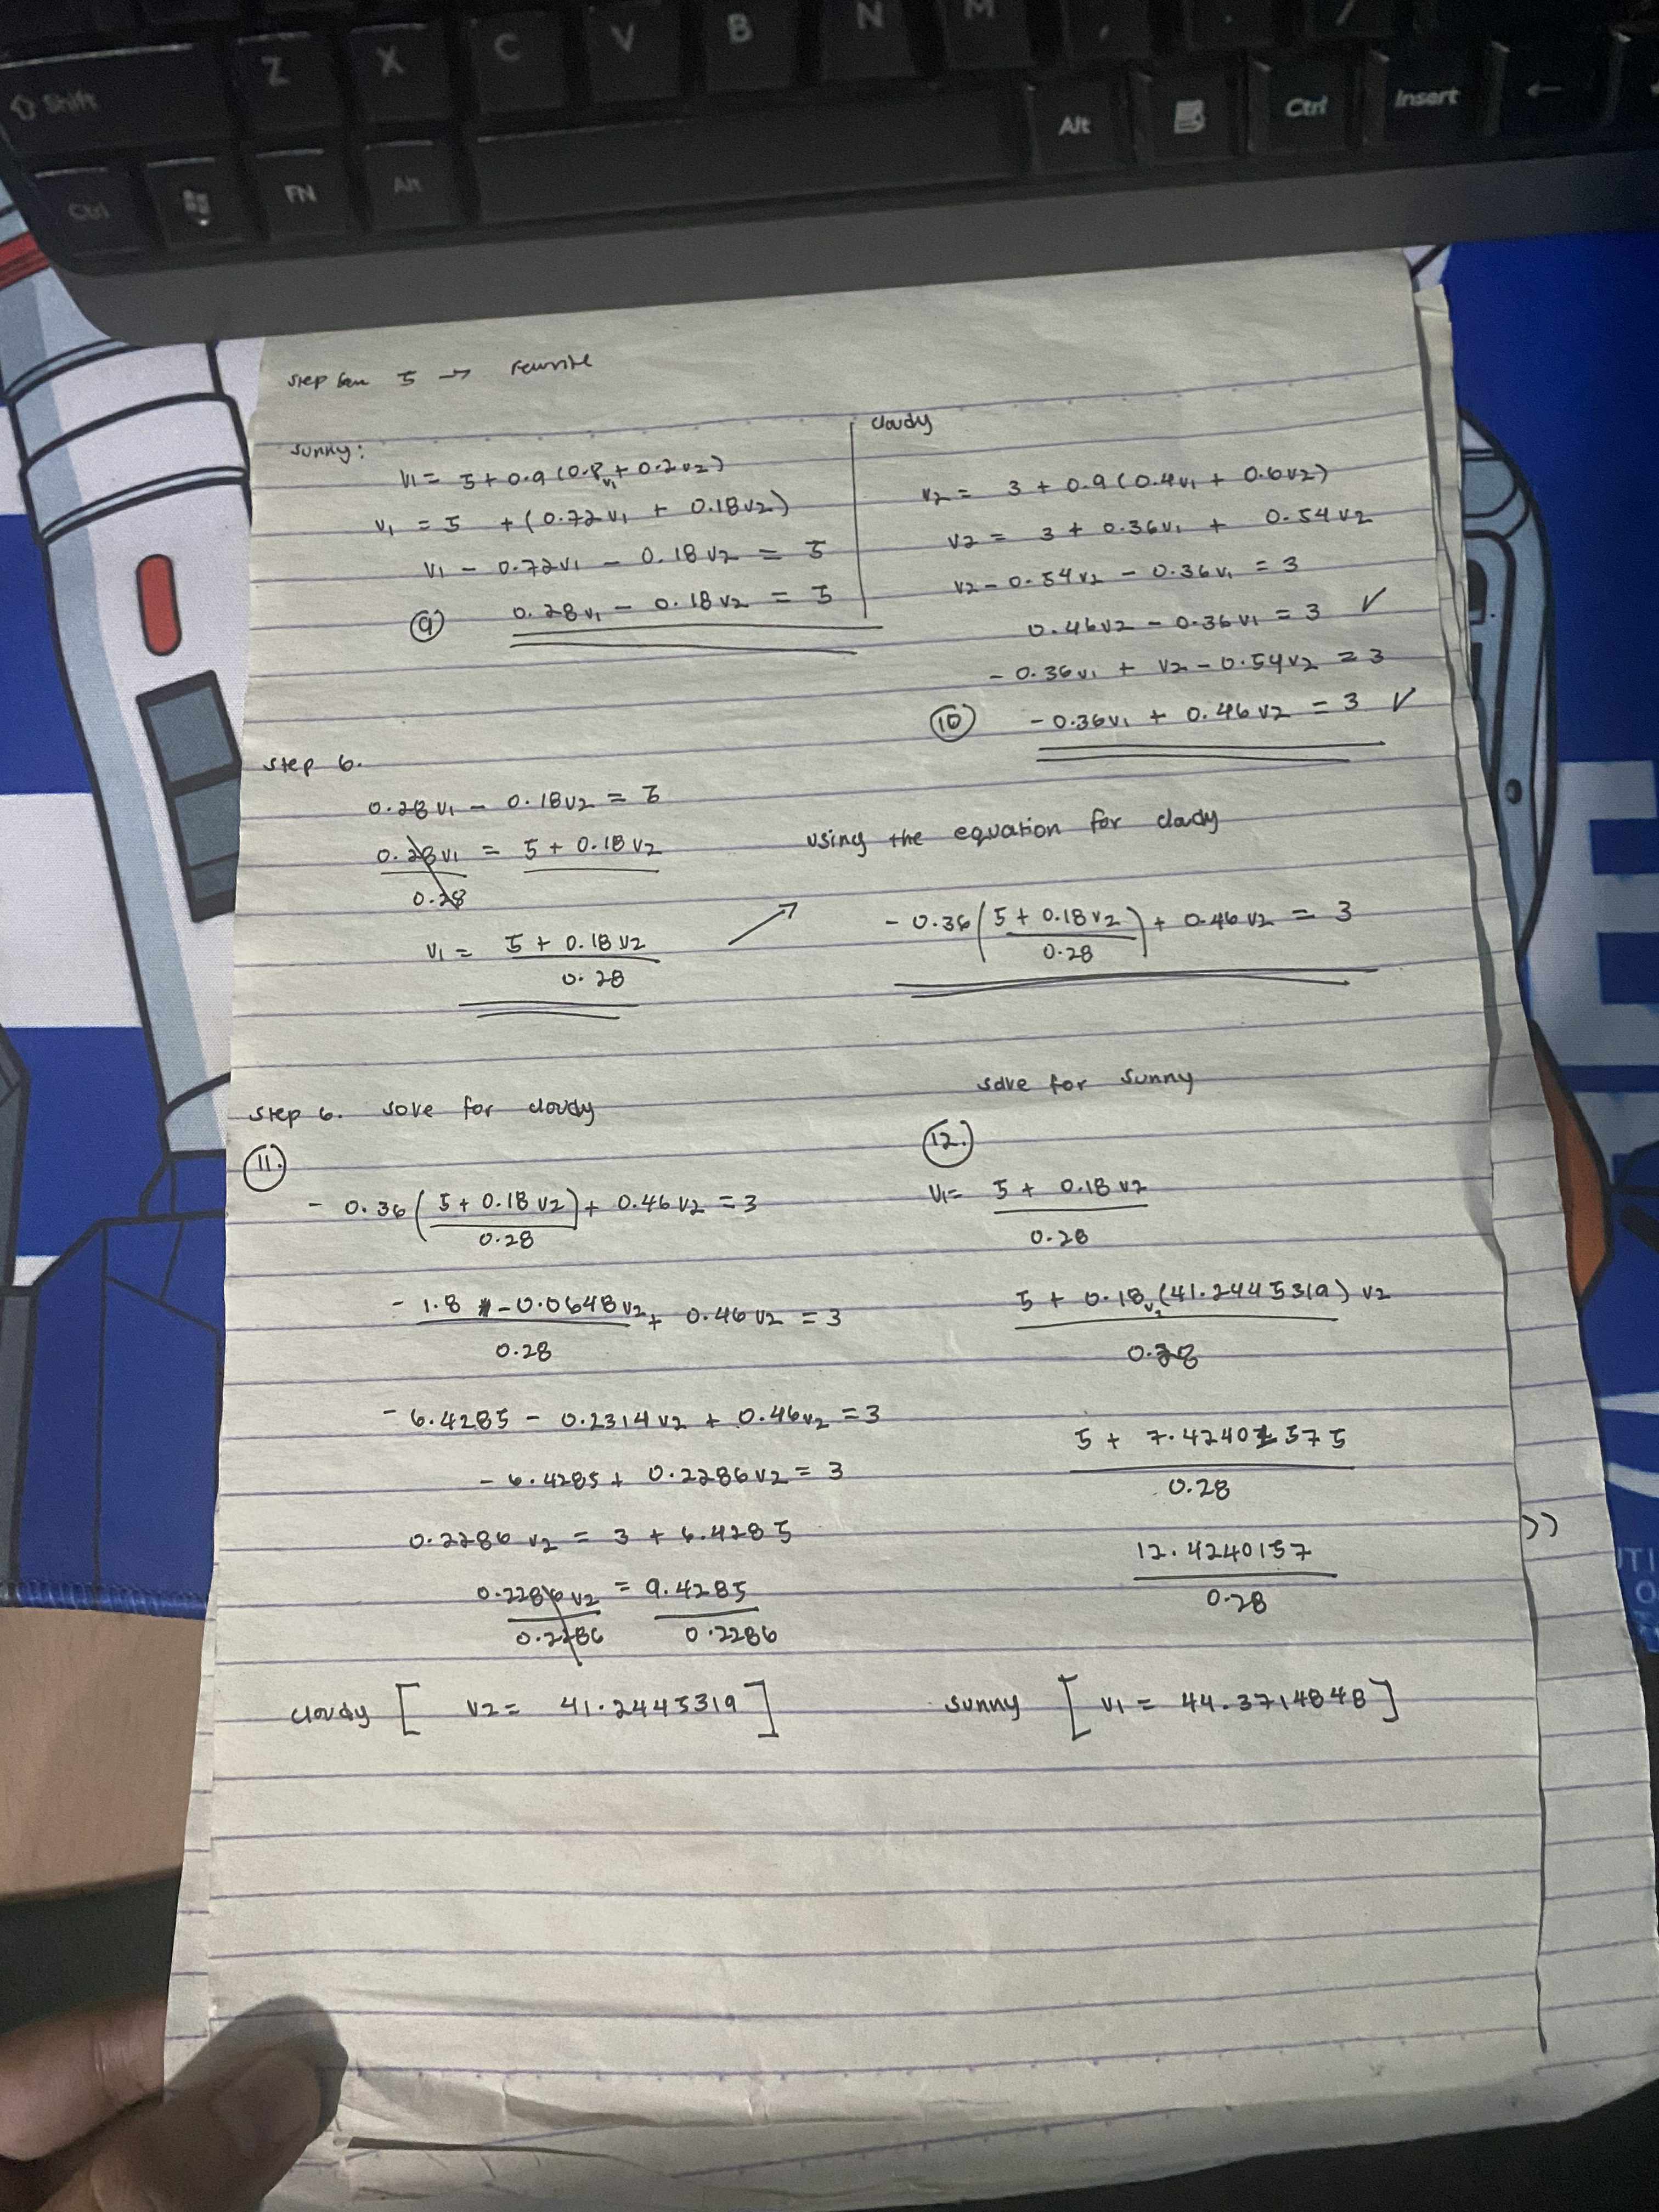 Shift
Z X C V B N M , . /
Ctrl FN Alt Alt Ctrl Insert ←
step 5 → rewrite
sunny:
V1 = 5 + 0.9 (0.8v1 + 0.2v2)
V1 = 5 + (0.72v1 + 0.18v2)
V1 - 0.72v1 - 0.18v2 = 5
(9) 0.28v1 - 0.18v2 = 5
cloudy
V2 = 3 + 0.9 (0.4v1 + 0.6v2)
V2 = 3 + 0.36v1 + 0.54v2
V2 - 0.54v2 - 0.36v1 = 3
0.46v2 - 0.36v1 = 3 ✓
- 0.36v1 + V2 - 0.54v2 = 3
(10) - 0.36v1 + 0.46v2 = 3 ✓
step 6.
0.28v1 - 0.18v2 = 5
0.28v1 = 5 + 0.18v2
0.28
V1 = 5 + 0.18v2
0.28
using the equation for cloudy
- 0.36 (5 + 0.18v2) + 0.46v2 = 3
0.28
step 6. solve for cloudy
(11.)
- 0.36 (5 + 0.18v2) + 0.46v2 = 3
0.28
- 1.8 - 0.0648v2 + 0.46v2 = 3
0.28
- 6.4285 - 0.2314v2 + 0.46v2 = 3
- 6.4285 + 0.2286v2 = 3
0.2286v2 = 3 + 6.4285
0.2286v2 = 9.4285
0.2286 0.2286
cloudy [ V2 = 41.2445319 ]
solve for sunny
(12.)
V1 = 5 + 0.18v2
0.28
5 + 0.18v2 (41.2445319) v2
0.28
5 + 7.42401575
0.28
12.4240157
0.28
sunny [ V1 = 44.3714848 ]
>>